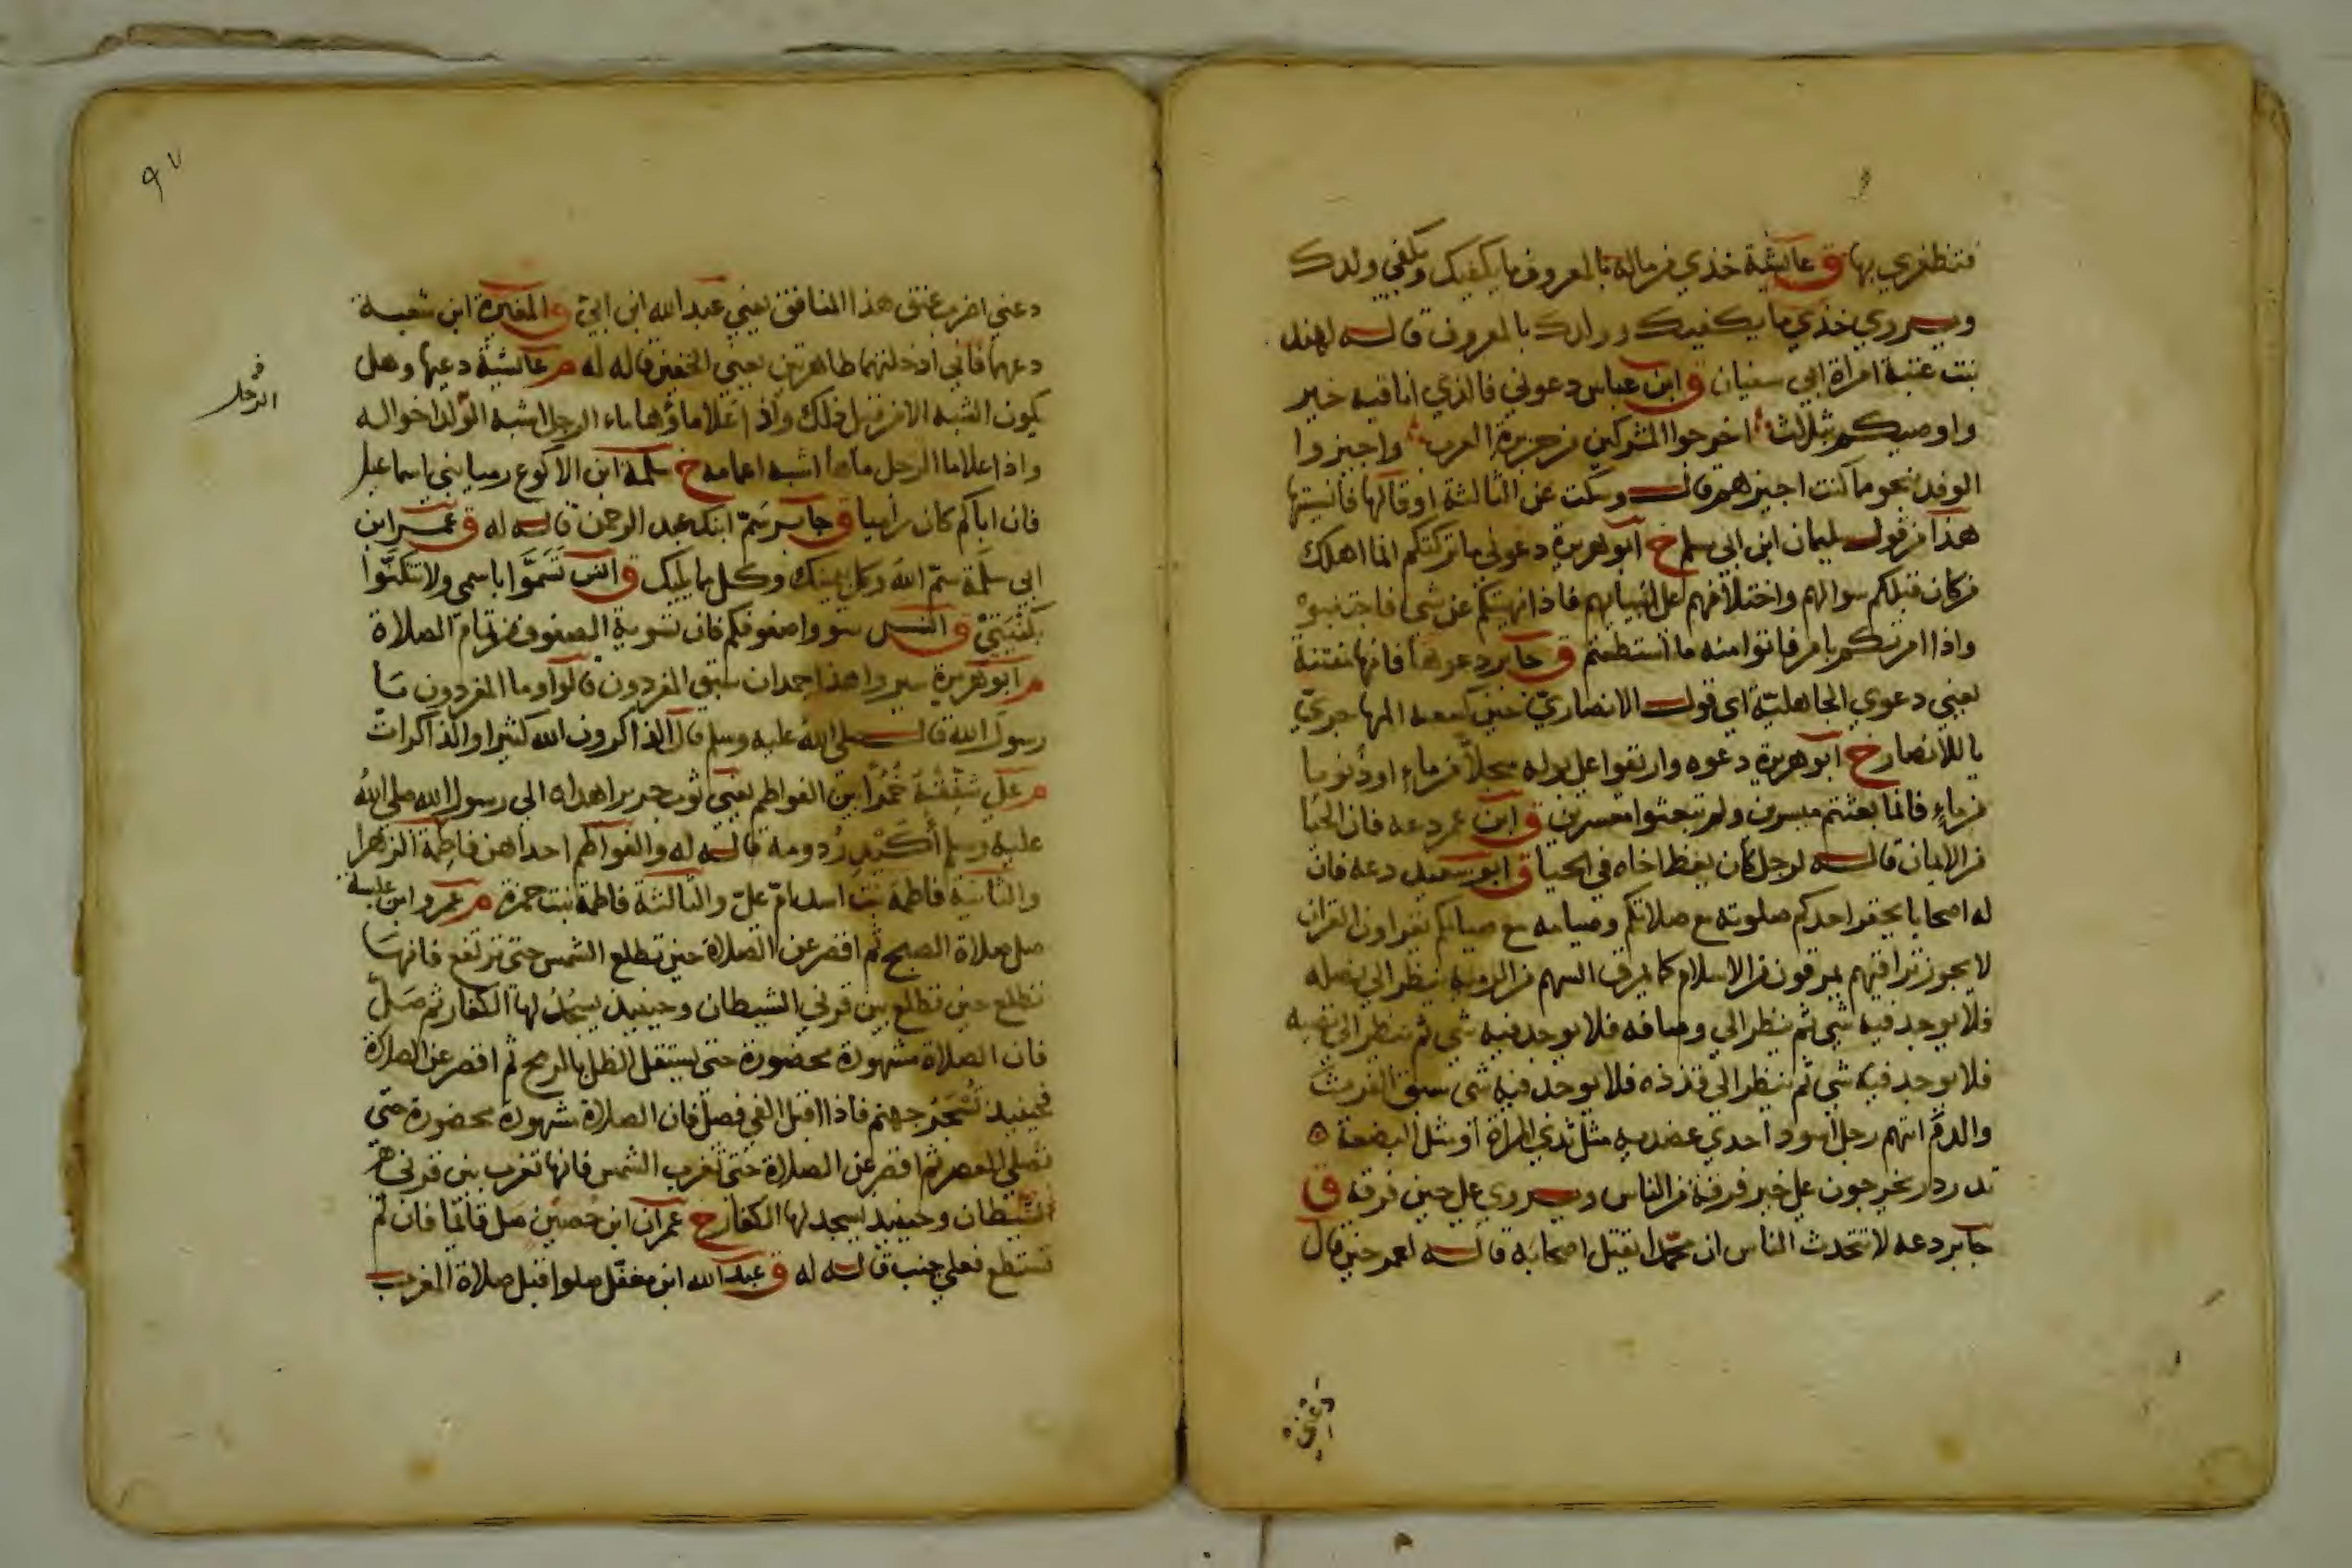 فتطهري بها ق عائشة خذي من ماله بالمعروف ما يكفيك ويكفي ولدك
ويروي خذي ما يكفيك وولدك بالمعروف قاله لهند
بنت عتبة امراة ابي سفيان ق ابن عباس دعوني فالذي انا فيه خير
واوصيكم بثلاث اخرجوا المشركين من جزيرة العرب واجيزوا
الوفد بنحو ما كنت اجيزهم قال وسكت عن الثالثة او قالها فانسيتها
هذا من قول سليمان ابن ابي سلم خ ابو هريرة دعوني ما تركتكم انما اهلك
من كان قبلكم سوالهم واختلافهم على انبيايهم فاذا نهيتكم عن شي فاجتنبوه
واذا امرتكم بامر فاتوا منه ما استطعتم ق جابر دعوها فانها منتنة
يعني دعوي الجاهلية اي قول الانصاري حين كسعه المهاجري
يا للانصار خ ابو هريرة دعوه واريقوا على بوله سجلا من ماء او ذنوبا
من ماء فانما بعثتم ميسرين ولم تبعثوا معسرين ق ابن عمر دعه فان الحيا
من الايمان قاله لرجل كان يعظ اخاه في الحيا ق ابو سعيد دعه فان
له اصحابا يحقر احدكم صلوته مع صلاتكم وصيامه مع صيامكم يقراون القران
لا يجوز تراقيهم يمرقون من الاسلام كما يمرق السهم من الرمية ينظر الى نصله
فلا يوجد فيه شي ثم ينظر الي رصافه فلا يوجد فيه شي ثم ينظر الى نضيه
فلا يوجد فيه شي ثم ينظر الى قذذه فلا يوجد فيه شي سبق الفرث
والدم ايتهم رجل اسود احدي عضديه مثل ثدي المراة او مثل البضعة
تدردر يخرجون على خير فرقة من الناس ويروي على حين فرقة ق
جابر دعه لا تتحدث الناس ان محمدا يقتل اصحابه قاله لعمر حين قال
دعني
٩٧
دعني اضرب عنق هذا المنافق يعني عبد الله ابن ابي ق المغيرة ابن شعبة
دعهما فاني ادخلتهما طاهرتين يعني الخفين قاله له م عائشة دعيها وهل
يكون الشبه الا من قبل ذلك واذا علا ماؤها ماء الرجل اشبه الولد اخواله
الرجل
واذا علا ماء الرجل ماها اشبه اعمامه خ سلمة ابن الاكوع رميا بني اسماعيل
فان اباكم كان راميا ق جابر سم ابنك عبد الرحمن قاله له ق عمر ابن
ابي سلمة سم الله وكل بيمينك وكل مما يليك ق انس تسموا باسمي ولا تكنوا
بكنيتي ق انس سووا صفوفكم فان تسوية الصفوف من تمام الصلاة
م ابو هريرة سيروا هذا جمدان سبق المفردون قالوا وما المفردون يا
رسول الله قال صلى الله عليه وسلم قال الذاكرون الله كثيرا والذاكرات
م علي شققه خمرا بين الفواطم يعني ثوب حرير اهداه الي رسول الله صلى الله
عليه وسلم أكيدر دومة قاله له والفواطم احداهن فاطمة الزهرا
والثانية فاطمة بنت اسد ام علي والثالثة فاطمة بنت حمزة م عمرو ابن عبسة
صل صلاة الصبح ثم اقصر عن الصلاة حين تطلع الشمس حتى ترتفع فانها
تطلع حين تطلع بين قرني الشيطان وحينيذ يسجد لها الكفار ثم صل
فان الصلاة مشهودة محضورة حتى يستقل الظل بالرمح ثم اقصر عن الصلاة
فحينيذ تسجر جهنم فاذا اقبل الفي فصل فان الصلاة مشهودة محضورة حتى
تصلي العصر ثم اقصر عن الصلاة حتى تغرب الشمس فانها تغرب بين قرني
الشيطان وحينيذ يسجد لها الكفار خ عمران ابن حصين صل قائما فان لم
تستطع فعلي جنب قاله له ق عبد الله ابن مغفل صلوا قبل صلاة المغرب